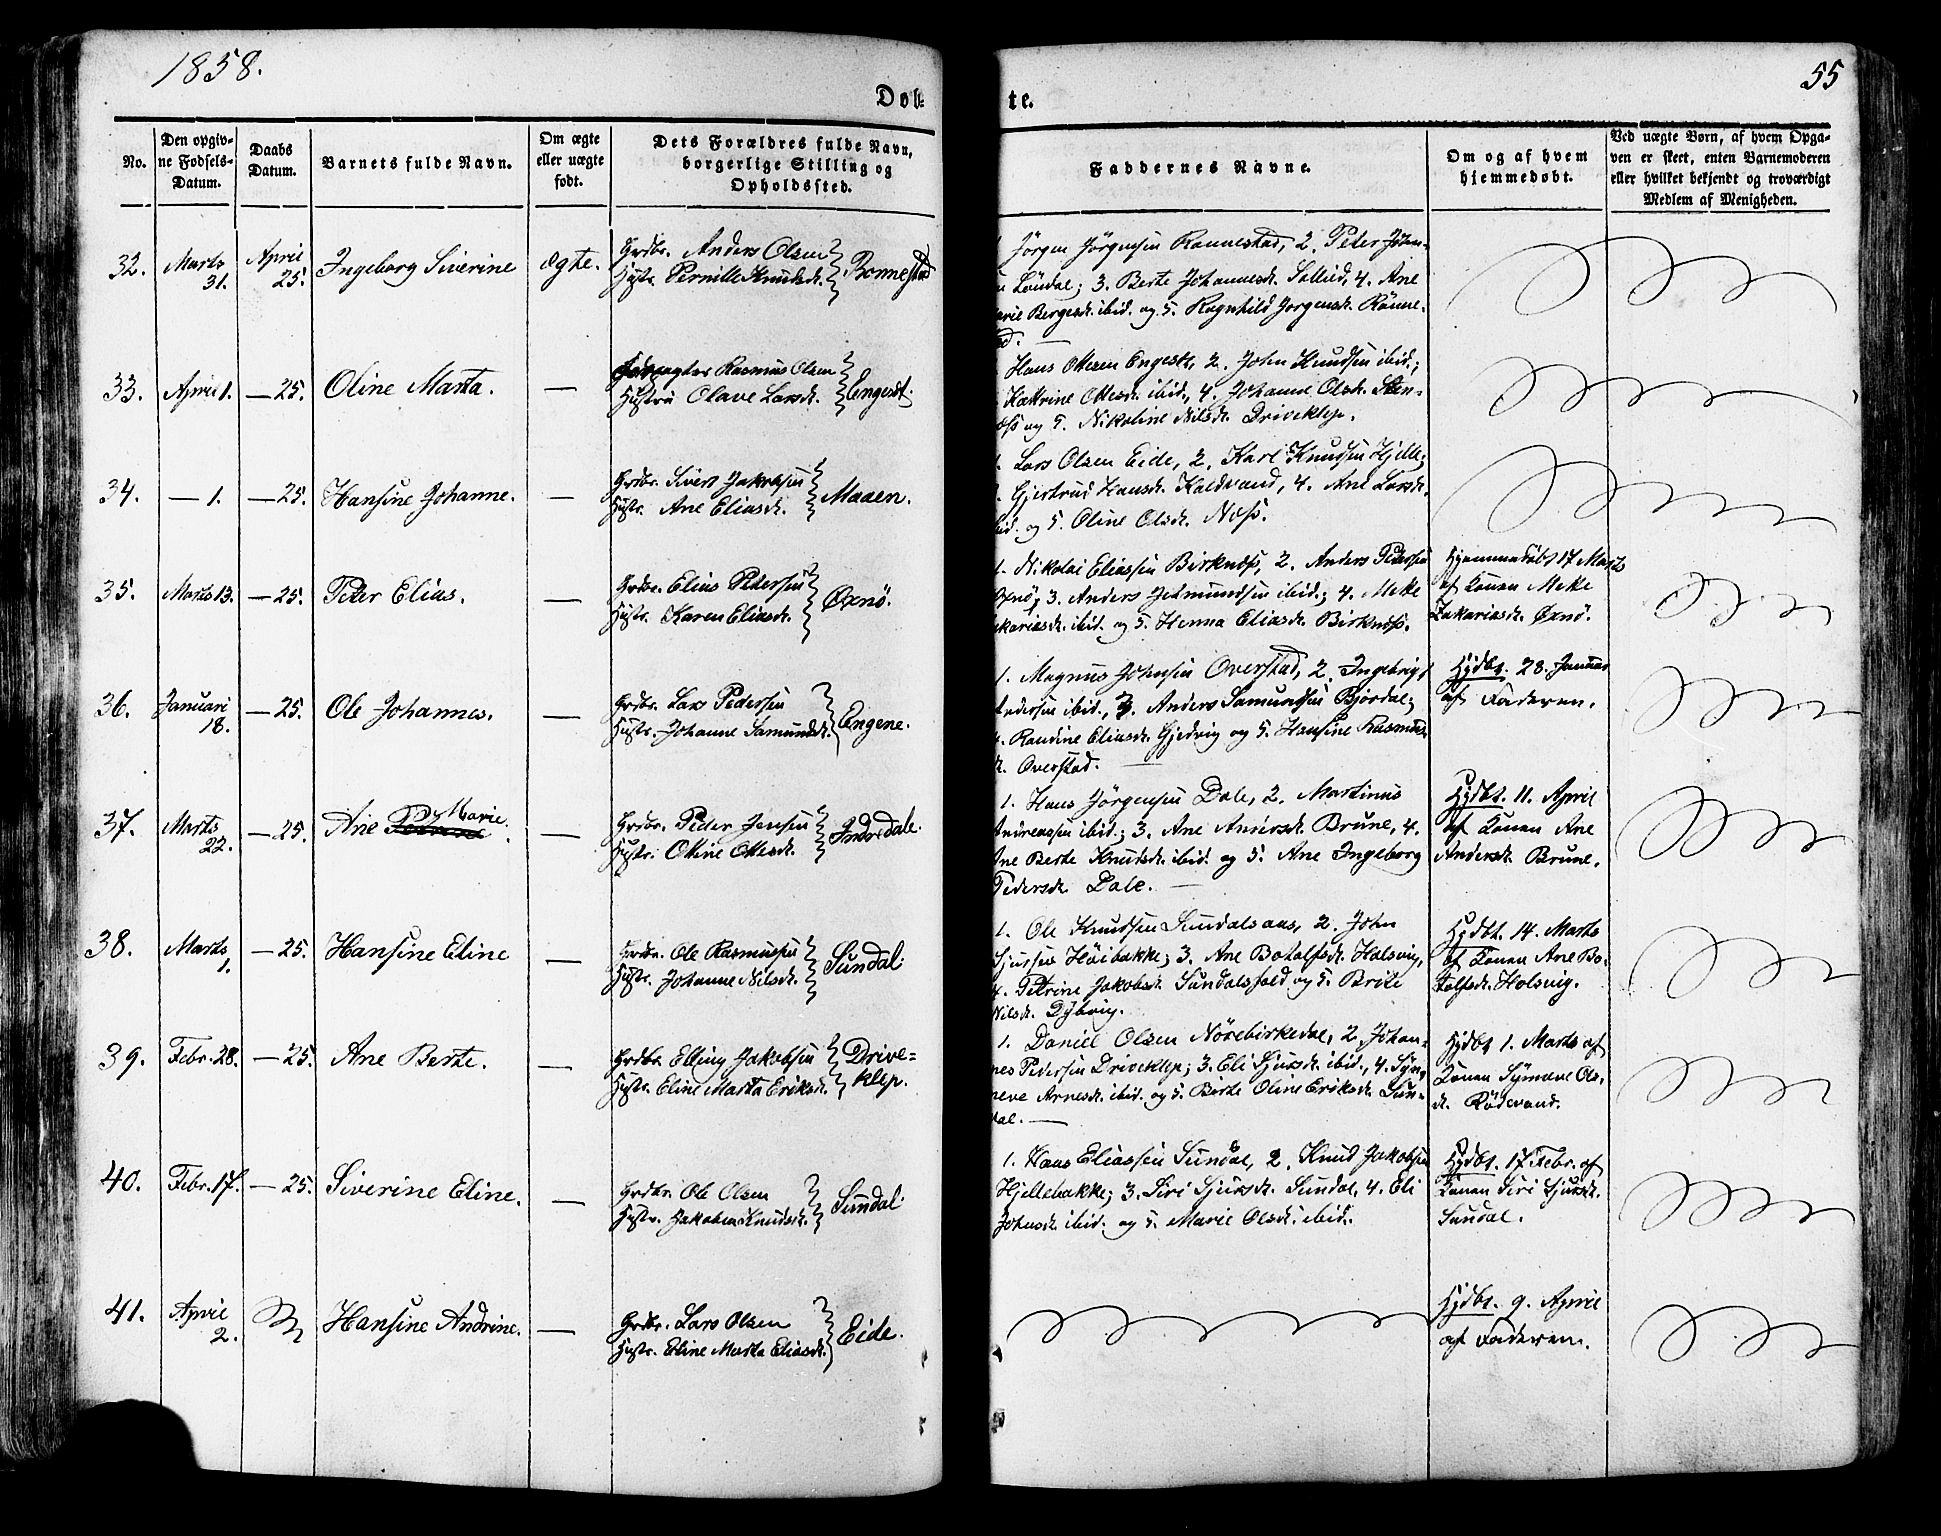 1858.
55
Døb-
te.
No.
Den opgiv-
ne Fødsels-
Datum.
Daabs
Datum.
Barnets fulde Navn.
Om ægte
eller uægte
født.
Dets Forældres fulde Navn,
borgerlige Stilling og
Opholdssted.
Faddernes Navne.
Om og af hvem
hjemmedøbt.
Ved uægte Børn, af hvem Opga-
ven er skeet, enten Barnemoderen
eller hvilket bekjendt og troværdigt
Medlem af Menigheden.
32. Marts 31. April 25. Ingeborg Siverine ægte.
Grdbr. Anders Olsen
Hustr. Pernille Knudsdr. Ronnestad
Jørgen Jørgensen Ronnestad, 2. Peter Johan-
Løvdal; 3. Berte Johannesdr. Sollid, 4. Ane
Marie Bergesdr. ibid. og 5. Ragnhild Jørgensdr. Rönne-
33. April 1. — 25. Oline Marta. —
Rasmus Olsen
Hustru Olave Larsdr. Engeset.
Hans Ottesen Engeset, 2. John Knudsen ibid.;
Katrine Ottesdr. ibid., 4. Johanne Olsdr. Sten-
og 5. Nikoline Nilsdr. Driveklep.
34. — 1. — 25. Hansine Johanne. —
Grdbr. Sivert Jakobsen
Hustr. Ane Eliasdr. Maaen.
Lars Olsen Eide, 2. Karl Knudsen Hjelle;
Gjertrud Hansdr. Kaldvand, 4. Ane Larsdr.
ibid. og 5. Oline Olsdr. Næss.
35. Marts 13. — 25. Peter Elias. —
Grdbr. Elias Petersen
Hustr. Karen Eliasdr. Øxnø.
1. Nikolai Eliassen Birknæss, 2. Anders Petersen
Øxnø; 3. Anders Jetmundsen ibid.; 4. Meke
Zakariasdr. ibid. og 5. Henna Eliasdr. Birknæss.
Hjemmedøbt 17 Marts
af Konen Meke
Zakariasdr. Øxnø.
36. Januari 18. — 25. Ole Johannes. —
Grdbr. Lars Pedersen
Hustr. Johanne Samundsdr. Engene.
1. Magnus Johnsen Overstad, 2. Ingebrigt
Andersen ibid., 3. Anders Samundsen Bjørdal;
4. Randine Eliasdr. Gjedvig og 5. Hansine Rasmus-
dr. Overstad. —
Hjdbt. 28. Januar
af Faderen.
37. Marts 22. — 25. Ane Marie. —
Grdbr. Peder Jensen
Hustr. Ottine Ottesdr. Indredale.
1. Hans Jørgensen Dale, 2. Martinus
Andreassen ibid.; 3. Ane Andersdr. Brune, 4.
Ane Berte Knudsdr. ibid. og 5. Ane Ingeborg
Pedersdr. Dale. —
Hjdbt. 11. April
af Konen Ane
Andersdr. Brune.
38. Marts 1. — 25. Hansine Eline —
Grdbr. Ole Rasmussen
Hustr. Johanne Nilsdr. Sundal.
1. Ole Knudsen Sundalsaas, 2. John
Sjursen Höibakke; 3. Ane Botolfsdr. Holsvig,
4. Petrine Jakobsdr. Sundalsfald og 5. Brite
Nilsdr. Dybvig.
Hjdbt. 14. Marts
af Konen Ane Bo-
tolfsdr. Holsvig.
39. Febr. 28. — 25. Ane Berte. —
Grdbr. Elling Jakobsen
Hustr. Eline Marta Eriksdr. Drive-
klep.
1. Daniel Olsen Nörebirkedal, 2. Johan-
nes Pedersen Driveklep; 3. Eli Sjursdr. ibid., 4. Syn-
neve Arnesdr. ibid. og 5. Berte Oline Eriksdr. Sun-
dal. —
Hjdbt 1. Marts af
Konen Synneve Ols-
dr. Rödevand.
40. Febr. 17. — 25. Siverine Eline. —
Grdbr. Ole Olsen
Hustr. Jakobea Knudsdr. Sundal.
1. Hans Eliassen Sundal, 2. Knud Jakobsen
Hjellebakke; 3. Siri Sjursdr. Sundal, 4. Eli
Johnsdr. ibid. og 5. Marie Olsdr. ibid.
Hjdbt. 17 Febr. af
Konen Siri Sjursdr.
Sundal.
41. April 2. Hansine Andrine. —
Grdbr. Lars Olsen
Hustr. Eline Marta Eliasdr. Eide.
Hjdbt. 9. April
af Faderen.